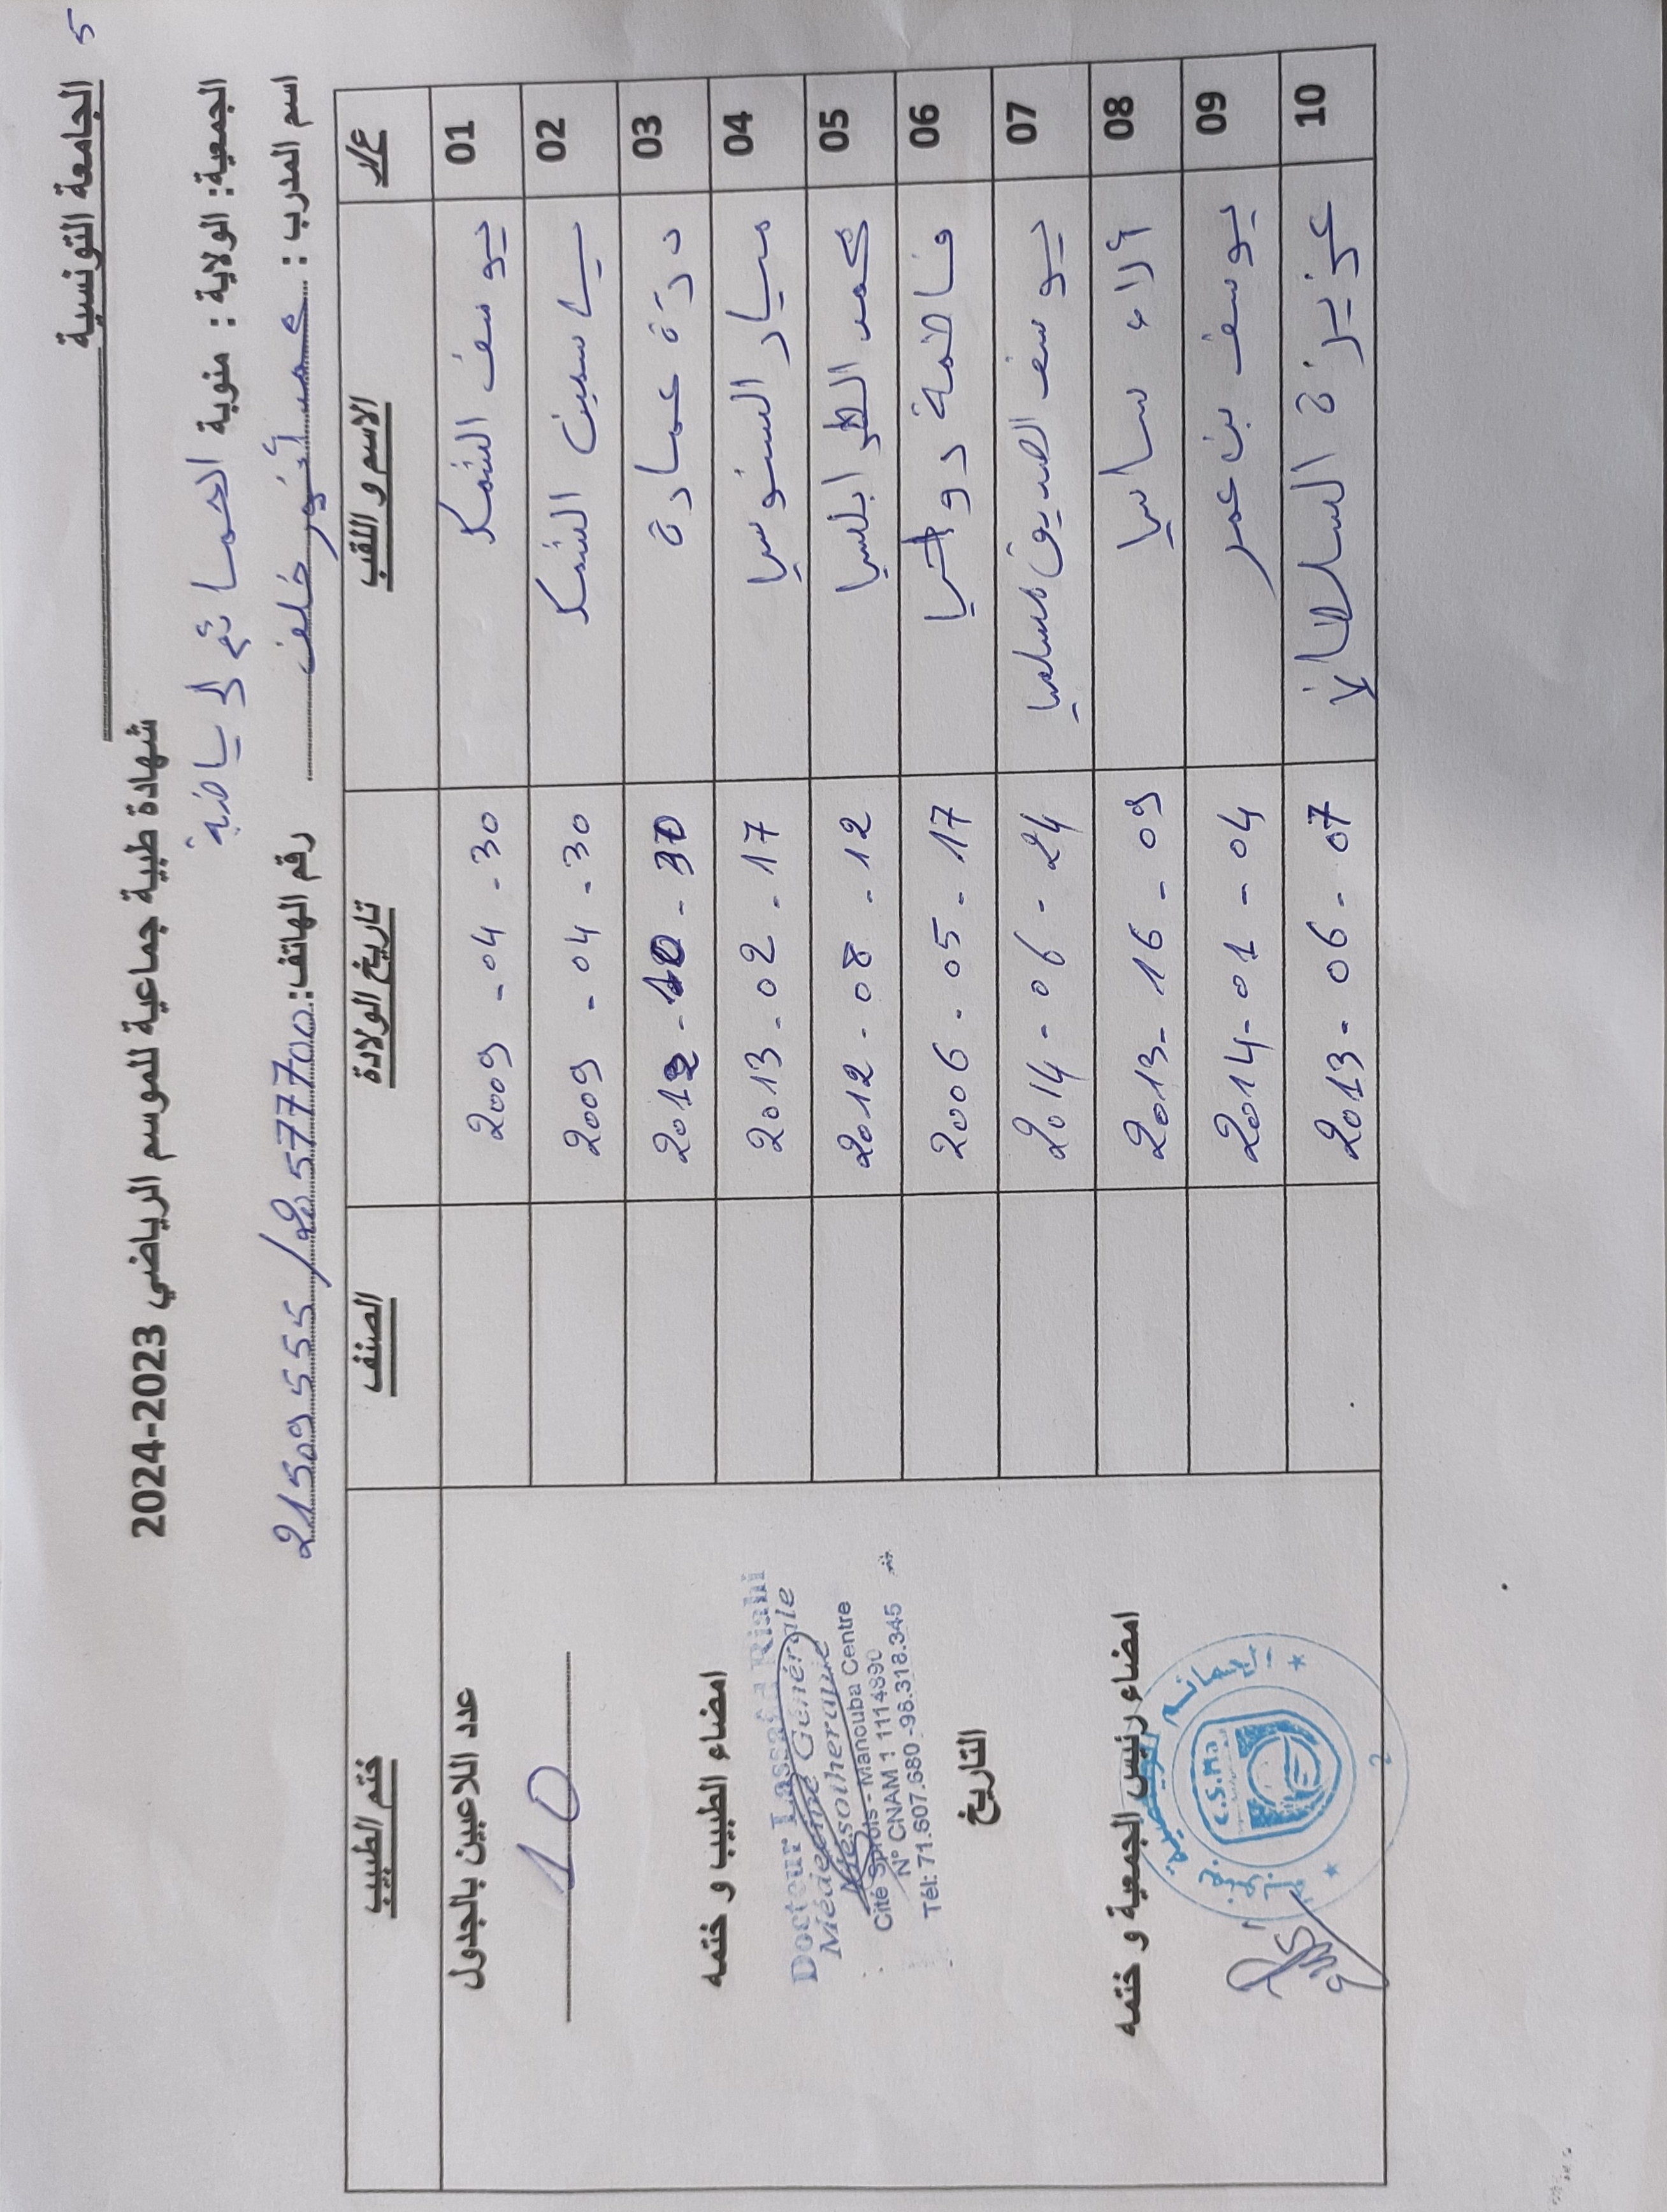 5
الجامعة التونسية
شهادة طبية جماعية للموسم الرياضي 2023-2024
الجمعية: الولاية : منوبة الحمائم الرياضية
اسم المدرب : أنور خلف رقم الهاتف: 21509555 /
ع/ر الاسم و اللقب تاريخ الولادة الصنف ختم الطبيب
01 يوسف الشمك 2009 - 04 - 30
02 ياسمين الشمك 2009 - 04 - 30
03 درة عمارة 2012 - 10 - 30
04 ميار السنوسي 2013 - 02 - 17
05 محمد الطرابلسي 2012 - 08 - 12
06 فاطمة 2006 - 05 - 17
07 يوسف الصديق 2014 - 06 - 24
08 آلاء ساسي 2013 - 16 - 09
09 يوسف بن عمر 2014 - 01 - 04
10 عزيزة السلطاني 2013 - 06 - 07
عدد اللاعبين بالجدول
10
امضاء الطبيب و ختمه
Docteur Lassaad Riahi
Médecine Générale
Mésotherapie
Cité Sprols - Manouba Centre
N° CNAM 1 1114890
Tél: 71.607.680 - 98.318.345
التاريخ
امضاء رئيس الجمعية و ختمه
C.S.Ma